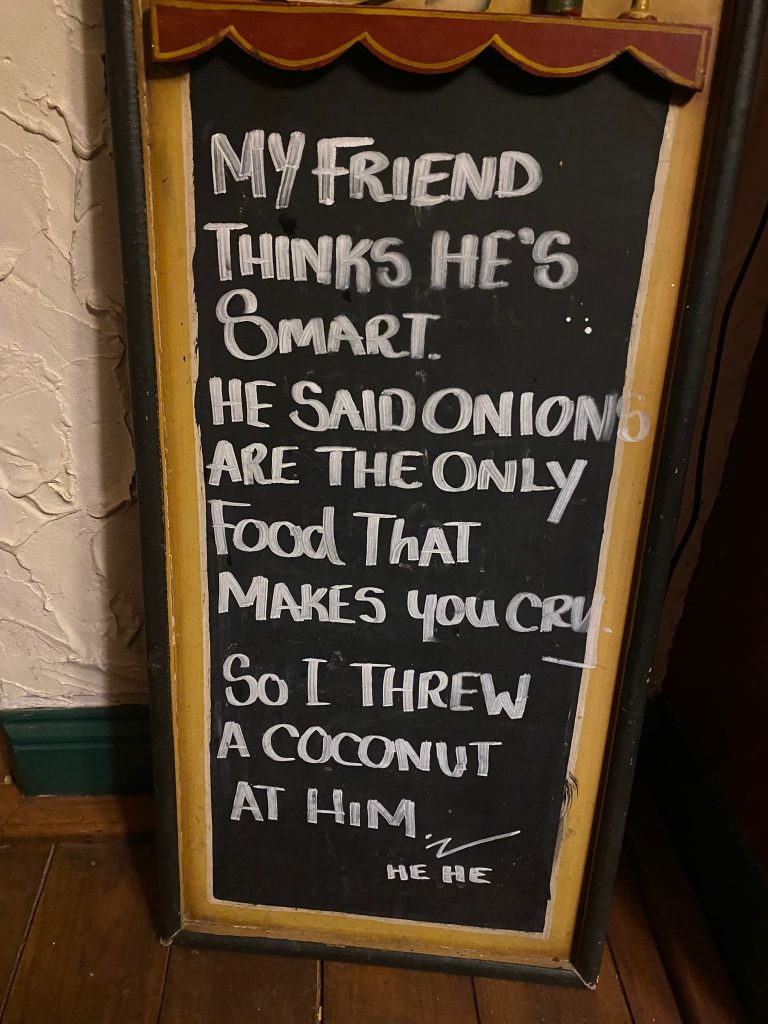 MY FRIEND
THINKS HE'S
SMART.
HE SAID ONIONS
ARE THE ONLY
FOOd THAT
MAKES YOU CRY.
SO I THREW
A COCONUT
AT HiM.
HE HE